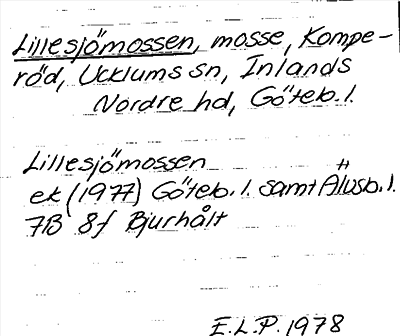 Lillesjömossen, mosse, Kompe-
röd, Ucklums sn, Inlands
Nordre hd, Göteb. l.
Lillesjömossen
ek (1977) Göteb. l. samt Älvsb. l.
7B 8f Bjurhålt
E.L.P. 1978